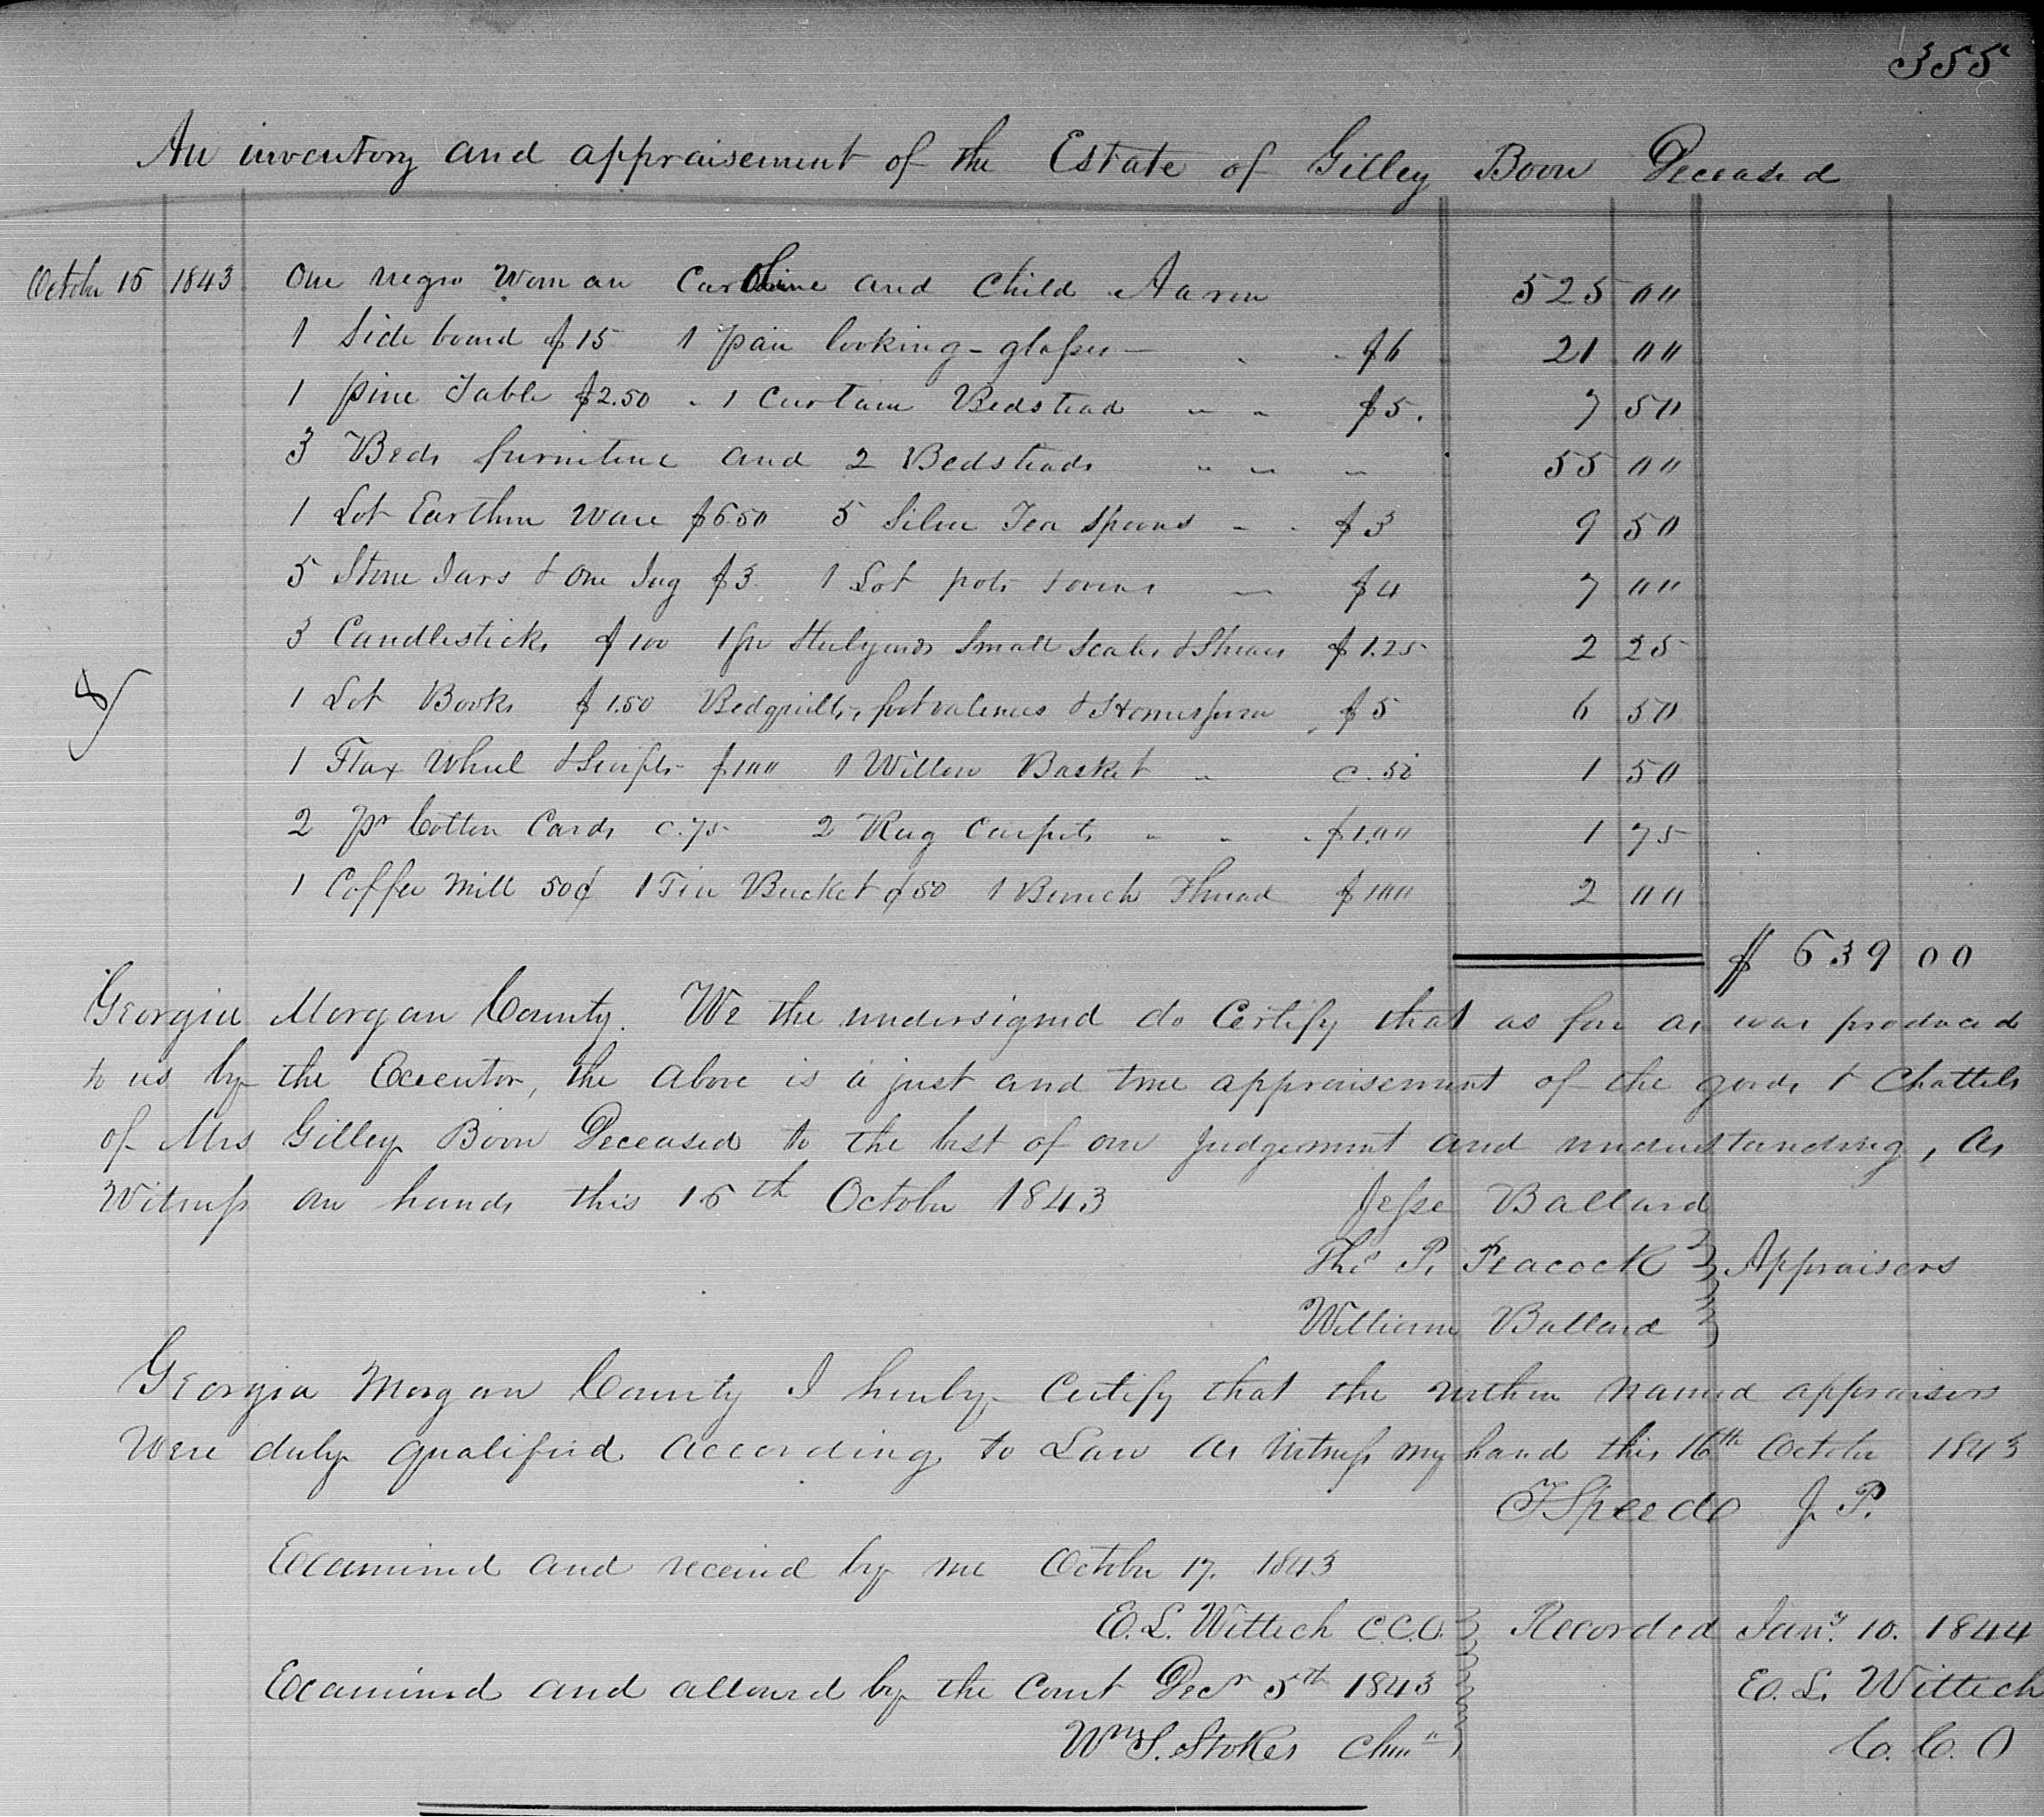 355
An inventory and appraisement of the Estate of Gilley Boon Deceased
October 16 1843 One negro Woman Caroline and Child Aaron 525 00
1 Side board $15 1 pair looking-glasses - $6 21 00
1 pine Table $2.50 " 1 Curtain Bedstead " " $5. 7 50
3 Beds furniture and 2 Bedsteads " " " 55 00
1 Lot Earthen Ware $6.50 5 Silver Tea Spoons - - $3 9 50
5 Stone Jars & One Jug $3. 1 Lot pots & ovens " $4 7 00
3 Candlesticks $100 1 pr Steelyards Small Scales & Shears $1.25 2 25
1 Lot Books $1.50 Bedquilts, footvalences & Homespun $5 6 50
1 Flax Wheel & $100 1 Willow Basket " c. 50 1 50
2 pr Cotton Cards c.75 2 Rug Carpets " " $1.00 1 75
1 Coffee Mill 50¢ 1 Tin Bucket ¢50 1 Bunch Thread $100 2 00
$ 639 00
Georgia Morgan County. We the undersigned do Certify that as far as was produced
to us by the Executor, the above is a just and true appraisement of the goods & Chattels
of Mrs Gilley Boon Deceased to the best of our Judgement and understanding, As
Witness our hands this 16th October 1843 Jesse Ballard
Tho P. Peacock Appraisers
William Ballard
Georgia Morgan County I hereby Certify that the within named appraisers
Were duly qualified according to Law as Witness my hand this 16th October 1843
T Speed J. P.
Examined and received by me October 17. 1843
E. L. Wittich C.C.O. Recorded Jany. 10. 1844
Examined and allowed by the Court Decr 5th 1843 E. L. Wittich
Wm S. Stokes Chmn C. C. O